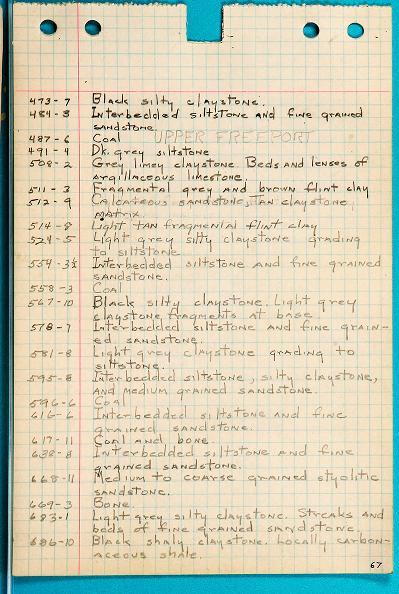 473-7 Black silty claystone.
484-8 Interbedded siltstone and fine grained
sandstone
487-6 Coal UPPER FREEPORT
491-4 Dk. grey siltstone
508-2 Grey limey claystone. Beds and lenses of
argillaceous limestone.
511-3 Fragmental grey and brown flint clay
512-9 Calcateous sandstone, tan claystone
matrix.
514-8 Light tan fragmental flint clay
524-5 Light grey silty claystone grading
to siltstone
554-3½ Interbedded siltstone and fine grained
sandstone.
558-3 Coal
567-10 Black silty claystone. Light grey
claystone fragments at base
578-7 Interbedded siltstone and fine grain-
ed sandstone.
581-8 Light grey claystone grading to
siltstone.
595-8 Interbedded siltstone, silty claystone,
and medium grained sandstone.
596-6 Coal
616-6 Interbedded siltstone and fine
grained sandstone.
617-11 Coal and bone.
638-8 Interbedded siltstone and fine
grained sandstone.
668-11 Medium to coarse grained styolitic
sandstone.
669-3 Bone.
683-1 Light grey silty claystone. Streaks and
beds of fine grained sandstone.
686-10 Black shaly claystone. Locally carbon-
aceous shale.
67